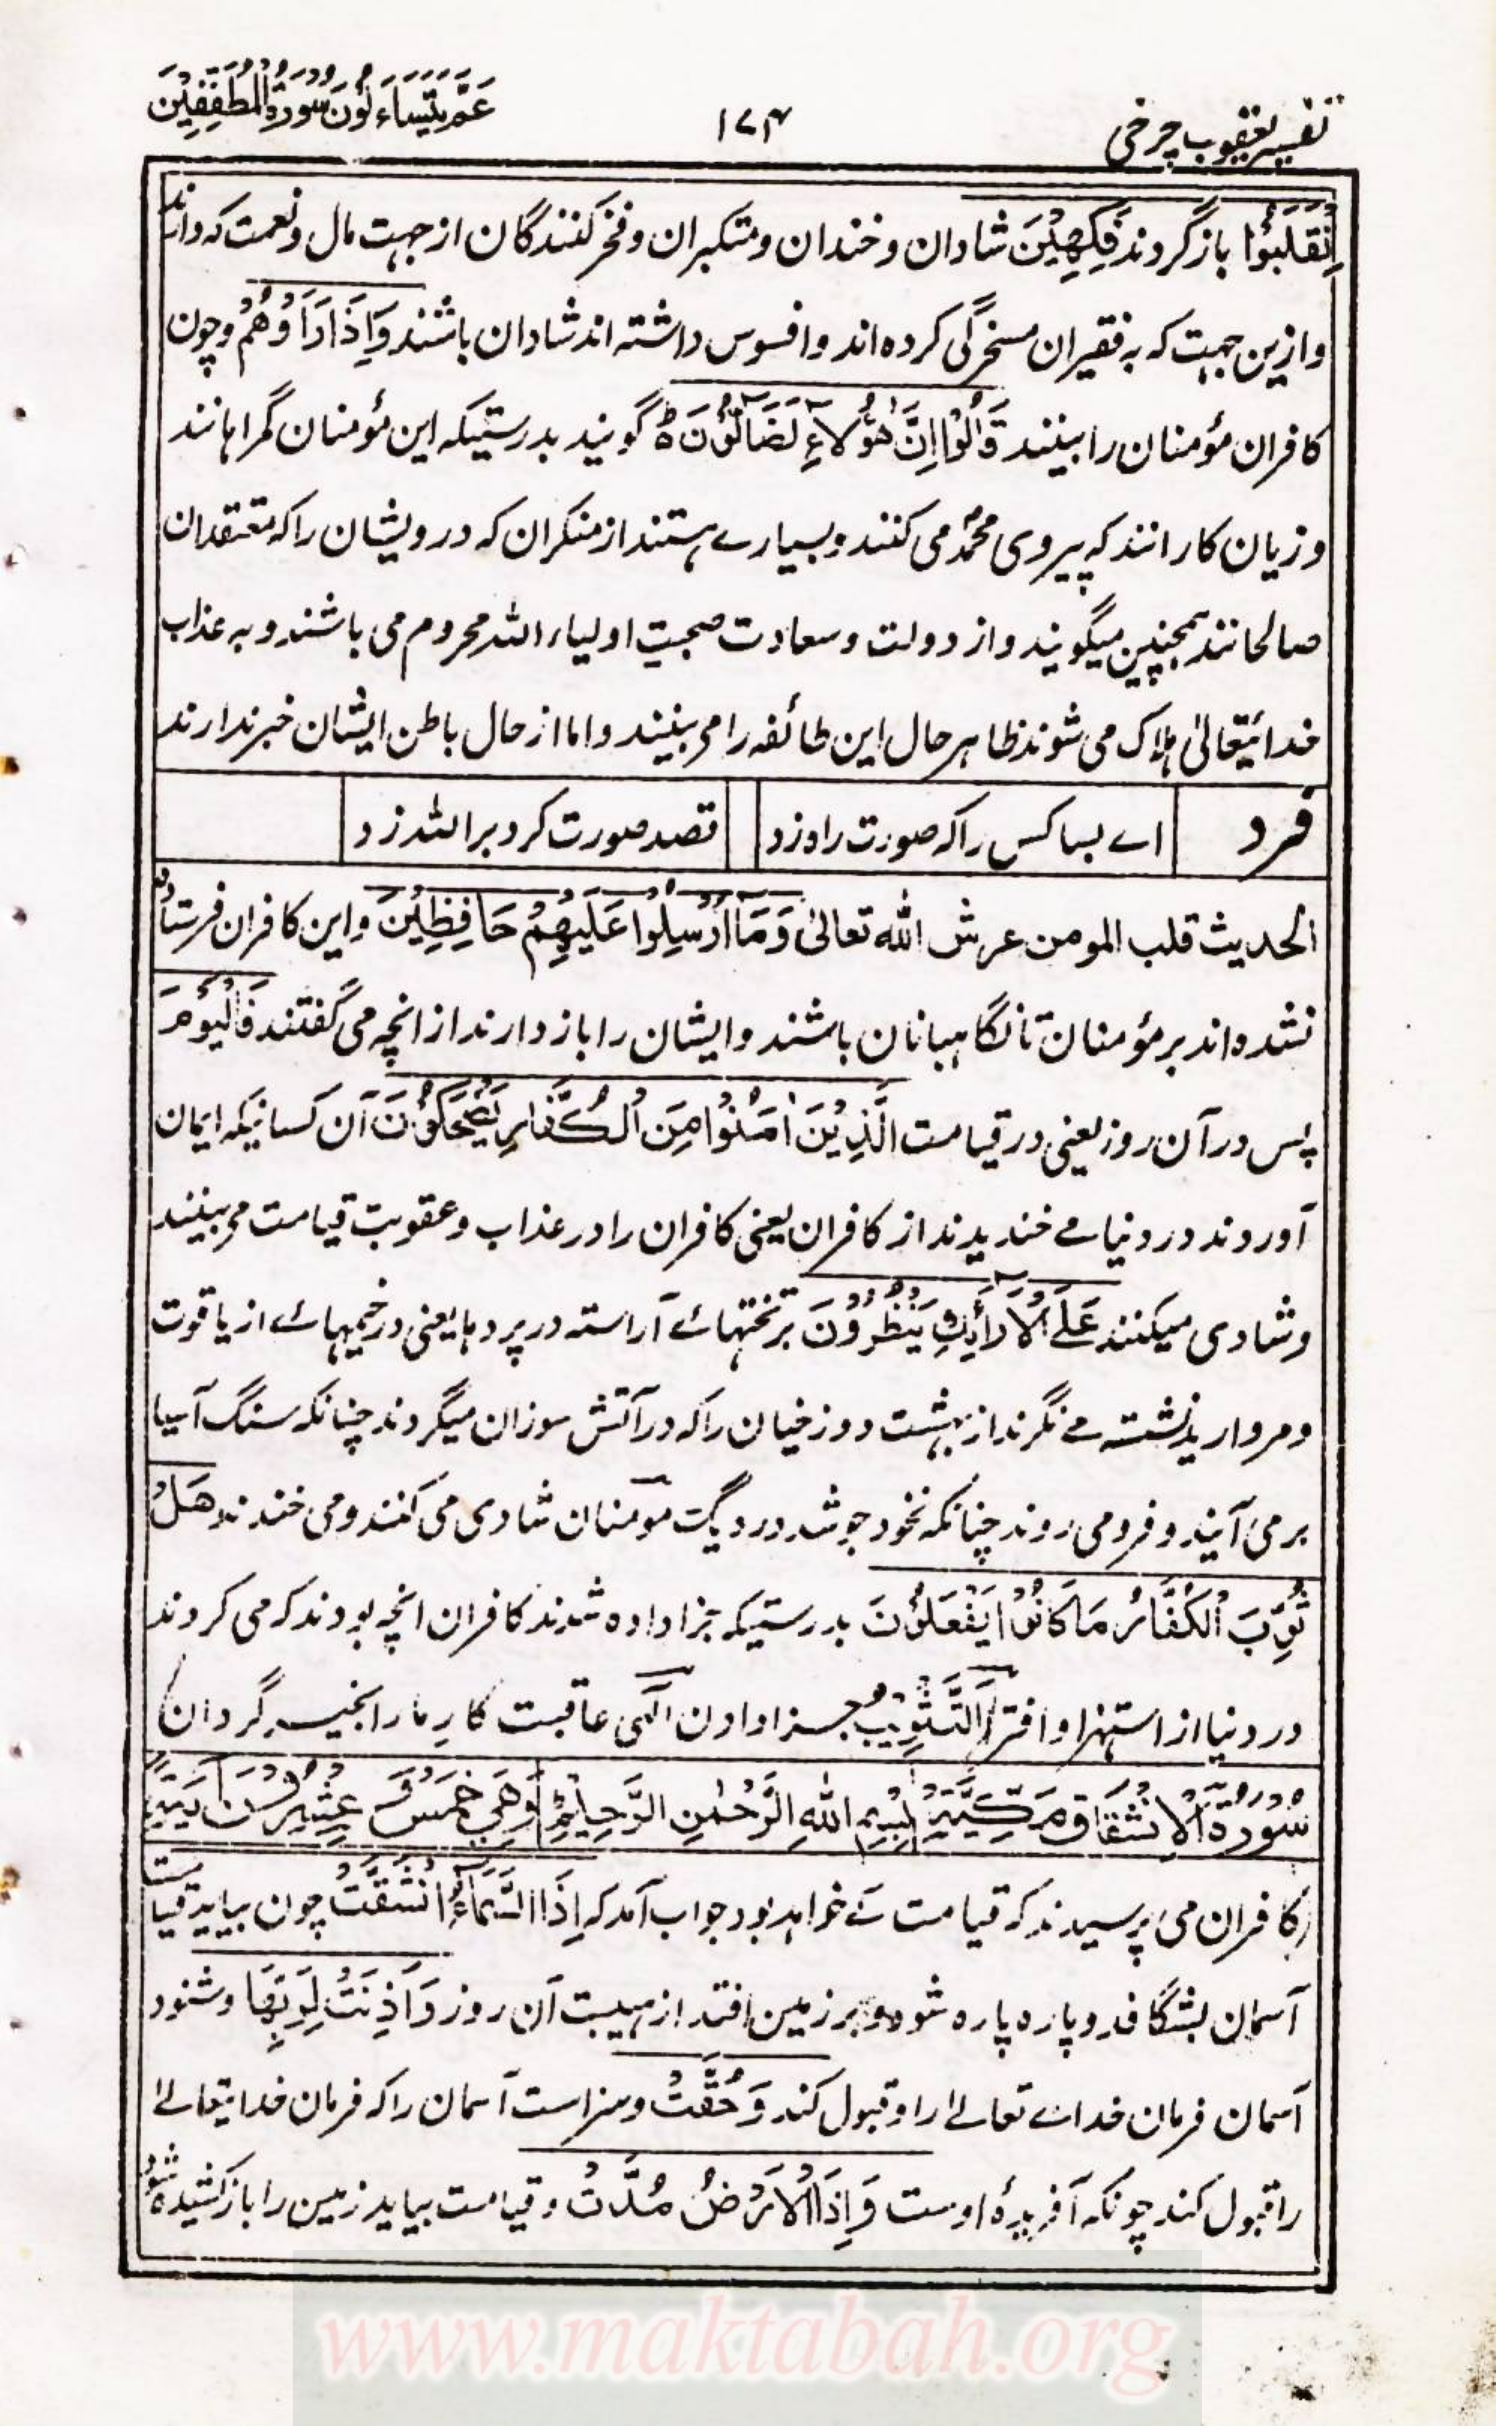 تفسیر یعقوب چرخی
۱۷۴
عَمَّ يَتَسَاءَلُوْنَ سُوْرَةُ الْمُطَفِّفِيْنَ
اِنْقَلَبُوْا باز گردند فَكِهِيْنَ شادان و خندان و متکبران و فخر کنندگان از جهت مال و نعمت که دارند
و ازین جهت که به فقیران مسخرگی کرده اند و افسوس داشته اند شادان باشند وَاِذَا رَاَوْهُمْ و چون
کافران مؤمنان را بینند قَالُوْا اِنَّ هٰؤُلَاءِ لَضَالُّوْنَ ہ گویند بدرستیکه این مؤمنان گمراہانند
و زیان کارانند که پیروی محمدؐ می کنند و بسیارے ہستند از منکران که درویشان را که معتقدان
صالحانند ہمچنین میگویند و از دولت و سعادت صحبتِ اولیاء اللہ محروم می باشند و به عذاب
خدائیتعالیٰ ہلاک می شوند ظاہر حال این طائفه را می بینند و اما از حال باطن ایشان خبر ندارند
فرد
اے بسا کس را که صورت راه زد
قصد صورت کرد بر اللہ زد
الحدیث قلب المومن عرش الله تعالیٰ وَمَآ اُرْسِلُوْا عَلَيْهِمْ حَافِظِيْنَ و این کافران فرستاده
نشده اند بر مؤمنان تا نگاہبانان باشند و ایشان را باز دارند از انچه می گفتند فَالْيَوْمَ
پس در آن روز یعنی در قیامت الَّذِيْنَ اٰمَنُوْا مِنَ الْكُفَّارِ يَضْحَكُوْنَ آن کسانیکه ایمان
آوردند در دنیا مے خندیدند از کافران یعنی کافران را در عذاب و عقوبت قیامت می بینند
و شادی میکنند عَلَى الْاَرَآئِكِ يَنْظُرُوْنَ بر تختہائے آراسته در پردہا یعنی در خیمہائے از یاقوت
و مروارید نشسته مے نگرند از بہشت دوزخیان را که در آتش سوزان میگردند چنانکه سنگ آسیا
بر می آیند و فرو می روند چنانکه نخود جوشد در دیگ مؤمنان شادی می کنند و می خندند هَلْ
ثُوِّبَ الْكُفَّارُ مَا كَانُوْا يَفْعَلُوْنَ بدرستیکه جزا داده شدند کافران انچه بودند که می کردند
در دنیا از استہزا و افترا اَلتَّثْوِيْبُ جزا دادن الٰہی عاقبت کارِ ما را بخیر گردان
سُوْرَةُ الْاِنْشِقَاقِ مَكِّيَّةٌ بِسْمِ اللهِ الرَّحْمٰنِ الرَّحِيْمِ وَهِيَ خَمْسٌ وَّعِشْرُوْنَ اٰيَةً
کافران می پرسیدند که قیامت کے خواہد بود جواب آمد که اِذَا السَّمَآءُ انْشَقَّتْ چون بیاید قیامت
آسمان بشگافد و پاره پاره شود و بر زمین افتد از ہیبت آن روز وَاَذِنَتْ لِرَبِّهَا و شنود
آسمان فرمان خدائے تعالےٰ را و قبول کند وَحُقَّتْ و سزاست آسمان را که فرمان خدایتعالےٰ
را قبول کند چونکه آفریدۂ اوست وَاِذَا الْاَرْضُ مُدَّتْ و قیامت بیاید زمین را باز کشیده شود
www.maktabah.org